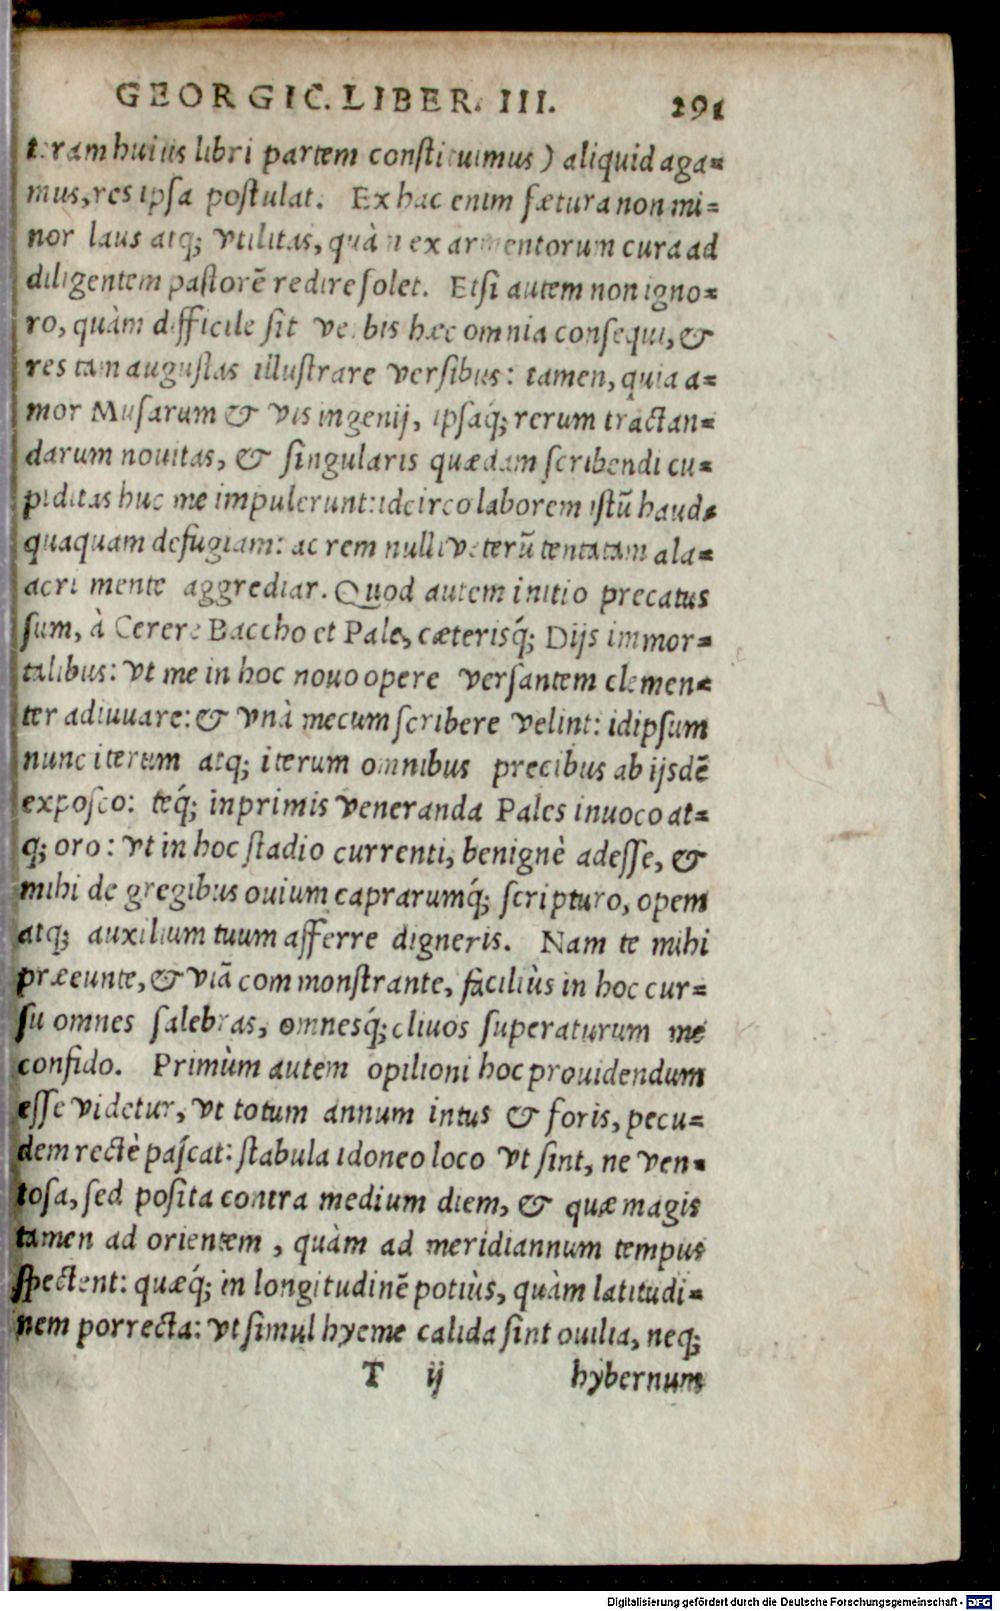 GEORGIC. LIBER. III. 291
teram huius libri partem constituimus) aliquid aga=
mus, res ipsa postulat. Ex hac enim fætura non mi=
nor laus atq; vtilitas, quàm ex armentorum cura ad
diligentem pastorē redire solet. Etsi autem non igno=
ro, quàm difficile sit verbis hæc omnia consequi, &
res tam augustas illustrare versibus: tamen, quia a=
mor Musarum & vis ingenij, ipsaq́; rerum tractan=
darum nouitas, & singularis quædam scribendi cu=
piditas huc me impulerunt: idcirco laborem istū haud=
quaquam defugiam: ac rem nulli veterū tentatam ala=
acri mente aggrediar. Quod autem initio precatus
sum, à Cerere Baccho et Pale, cæterisq́; Dijs immor=
talibus: vt me in hoc nouo opere versantem clemen=
ter adiuuare: & vnà mecum scribere velint: idipsum
nunc iterum atq; iterum omnibus precibus ab ijsdē
exposco: teq́; inprimis veneranda Pales inuoco at=
q; oro: vt in hoc stadio currenti, benignè adesse, &
mihi de gregibus ouium caprarumq́; scripturo, opem
atq; auxilium tuum afferre digneris. Nam te mihi
præeunte, & viā commonstrante, faciliùs in hoc cur=
su omnes salebras, omnesq́; cliuos superaturum me
confido. Primùm autem opilioni hoc prouidendum
esse videtur, vt totum annum intus & foris, pecu=
dem rectè pascat: stabula idoneo loco vt sint, ne ven=
tosa, sed posita contra medium diem, & quæ magis
tamen ad orientem, quàm ad meridiannum tempus
spectent: quæq́; in longitudinē potiùs, quàm latitudi=
nem porrecta: vt simul hyeme calida sint ouilia, neq;
T ij hybernum
Digitalisierung gefördert durch die Deutsche Forschungsgemeinschaft - DFG